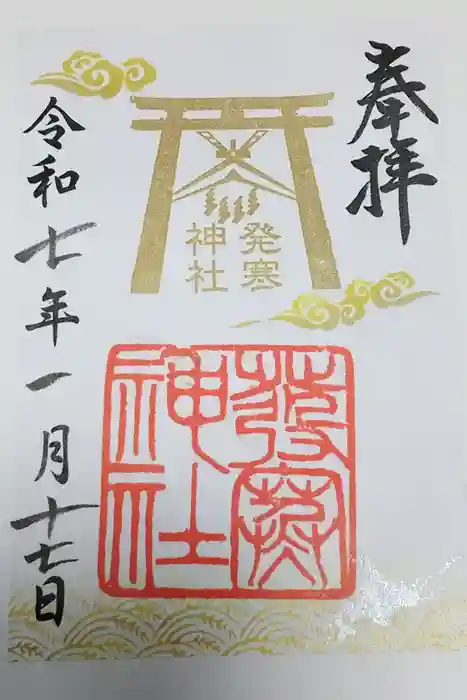 奉拝
発寒
神社
發寒
神社
令和七年一月十七日